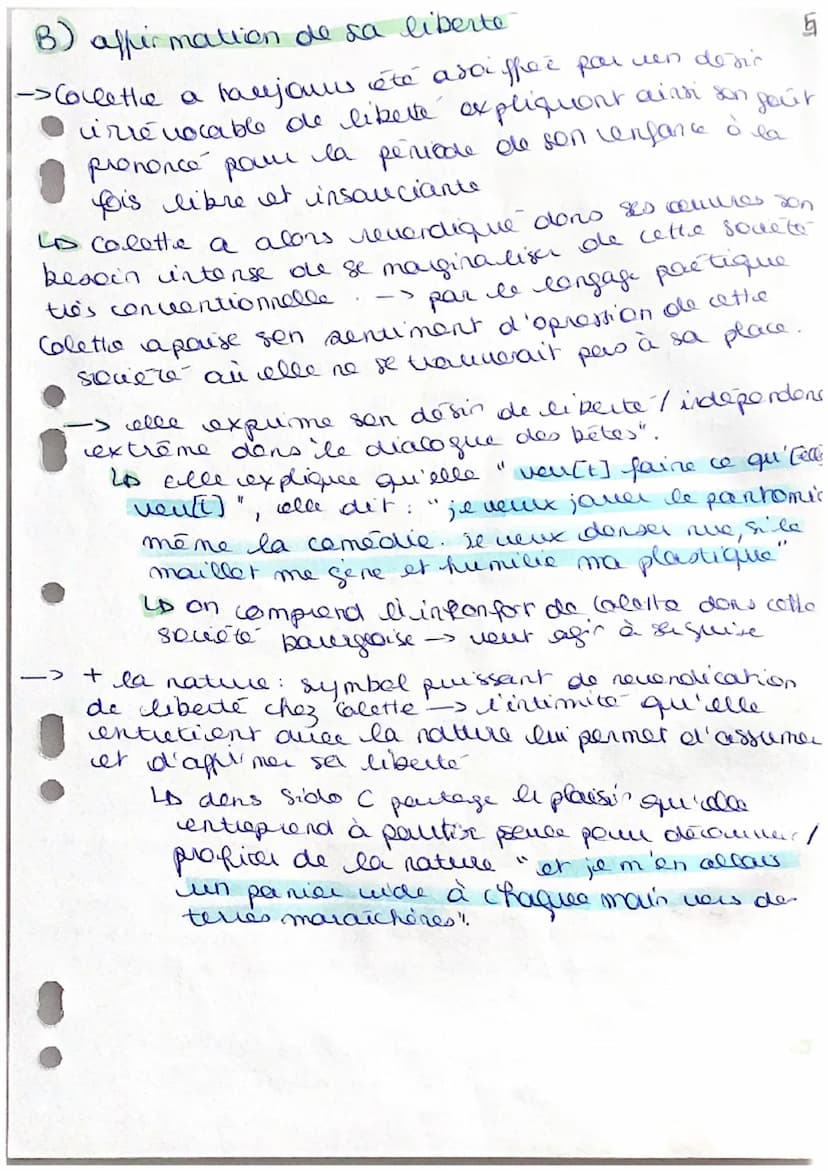 5
B) affirmation de sa liberté
-> Colette a toujours été assoiffée par un désir
irrévocable de liberté expliquant ainsi son goût
prononcé pour la période de son enfance à la
fois libre et insouciante
↳ Colette a alors revendiqué dans ses œuvres son
besoin intense de se marginaliser de cette société
très conventionnelle. -> par le langage poétique
Colette apaise son sentiment d'opression de cette
société où elle ne se trouverait pas à sa place.
-> elle exprime son désir de liberté / indépendanc
extrême dans "le dialogue des bêtes".
↳ Elle explique qu'elle "veu[t] faire ce qu'[elle]
veu[t]", elle dit : "je veux jouer la pantomi
même la comédie. je veux danser nue, si le
maillot me gêne et humilie ma plastique"
↳ on comprend l'inconfort de Colette dans cette
société bourgeoise -> veut agir à sa guise
-> + la nature : symbol puissant de revendication
de liberté chez Colette -> l'intimité qu'elle
entretient avec la nature lui permet d'assumer
et d'affirmer sa liberté
↳ dans Sido C partage le plaisir qu'elle
entreprend à partir seule pour découvrir /
profiter de la nature "et je m'en allais
un panier vide à chaque main vers des
terres maraîchères".